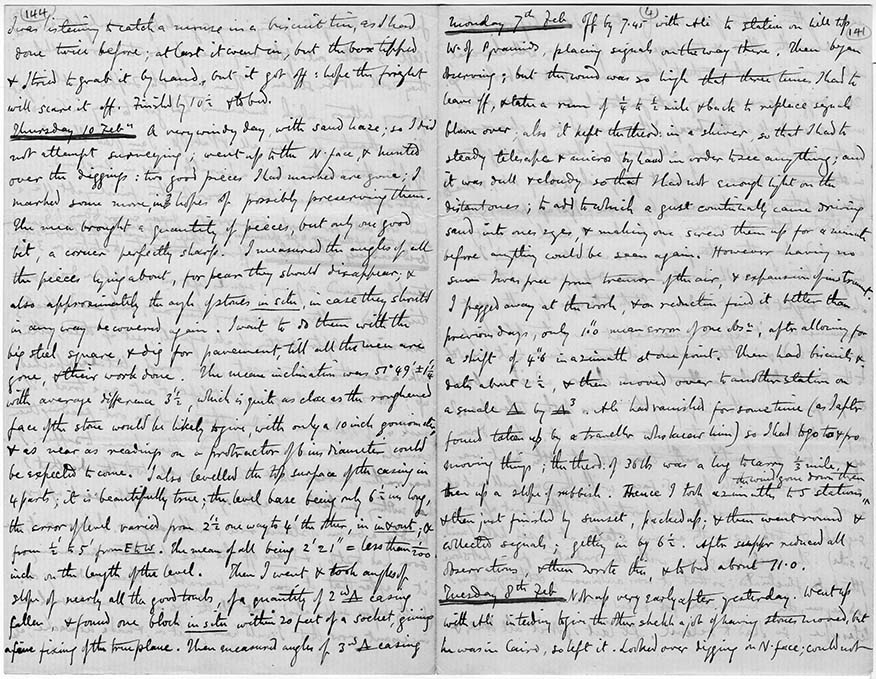 (144)
I was listening to catch a mouse in a biscuit tin, as I had
done twice before; at last it went in, but the box tipped
& I tried to grab it by hand, but it got off: hope the fright
will scare it off. Finished by 10½ & to bed.
Thursday 10 Feb A very windy day, with sand haze; so I did
not attempt surveying; went up to the N. face, & hunted
over the diggings: two good pieces I had marked are gone; I
marked some more, in hopes of possibly preserving them.
The men brought a quantity of pieces, but only one good
bit, a corner perfectly sharp. I measured the angles of all
the pieces lying about, for fear they should disappear, &
also approximately the angle of stones in situ, in case they should
in any way be covered again. I want to do them with the
big steel square, & dig for pavement, till all the men are
gone, & their work done. The mean inclination was 51° 49' ± 1¼'
with average difference 3½', which is quite as close as the roughened
face of the stone would be likely to give, with only a 10 inch goniometer
& as near as readings on a protractor of 6 ins diameter could
be expected to come. I also levelled the top surface of the casing in
4 parts; it is beautifully true; the level base being only 6½ ins long,
the error of level varied from 2½' one way to 4' the other, in in & out; &
from ½' to 5' from E to W. The mean of all being 2' 21" = less than 1/200
inch on the length of the level. Then I went & took angles of
slope of nearly all the good tombs, of a quantity of 2nd Δ casing
fallen, & found one block in situ within 20 feet of a socket, giving
a fine fixing of the true plane. Then measured angles of 3rd Δ casing
(4)
141
Monday 7th Feb off by 7.45 with Ali to station on hill top
W. of Pyramids, placing signals on the way there. Then began
observing; but the wind was so high that three times I had to
leave off, & take a run of ¼ to ½ mile & back to replace signals
blown over; also it kept the theod: in a shiver so that I had to
steady telescope & micros by hand in order to see anything; and
it was dull & cloudy so that I had not enough light on the
distant ones; to add to which a gust continually came driving
sand into ones eyes, & making one screw them up for a minute
before anything could be seen again. However having no
sun I was free from tremor of the air, & expansion of instrumt.
I pegged away at the work, & on reduction find it better than
previous days, only 1"0 mean error of one obsn, after allowing for
a shift of 4"6 in azimuth at one point. Then had biscuits &
dates about 2½, & then moved over to another station on
a small Δ by Δ3. Ali had vanished for some time (as I after
found taken up by a traveller who knew him) so I had to go to & fro
moving things; the theod. of 36 lbs was a lug to carry ½ mile, &
the wind gone down then
then up a slope of rubbish. Thence I took azimuths to 5 stations
& then just finished by sunset, packed up; & then went round &
collected signals; getting in by 6½. After supper reduced all
observations & then wrote this, & to bed about 11.0.
Tuesday 8th Feb Not up very early after yesterday. Went up
with Ali intending to give the other sheikh a job of having stones moved, but
he was in Cairo, so left it. Looked over digging on N. face; could not